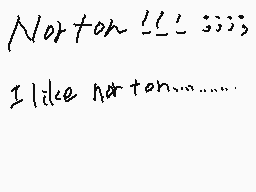 Norton !!! ;;;;
I like norton..........